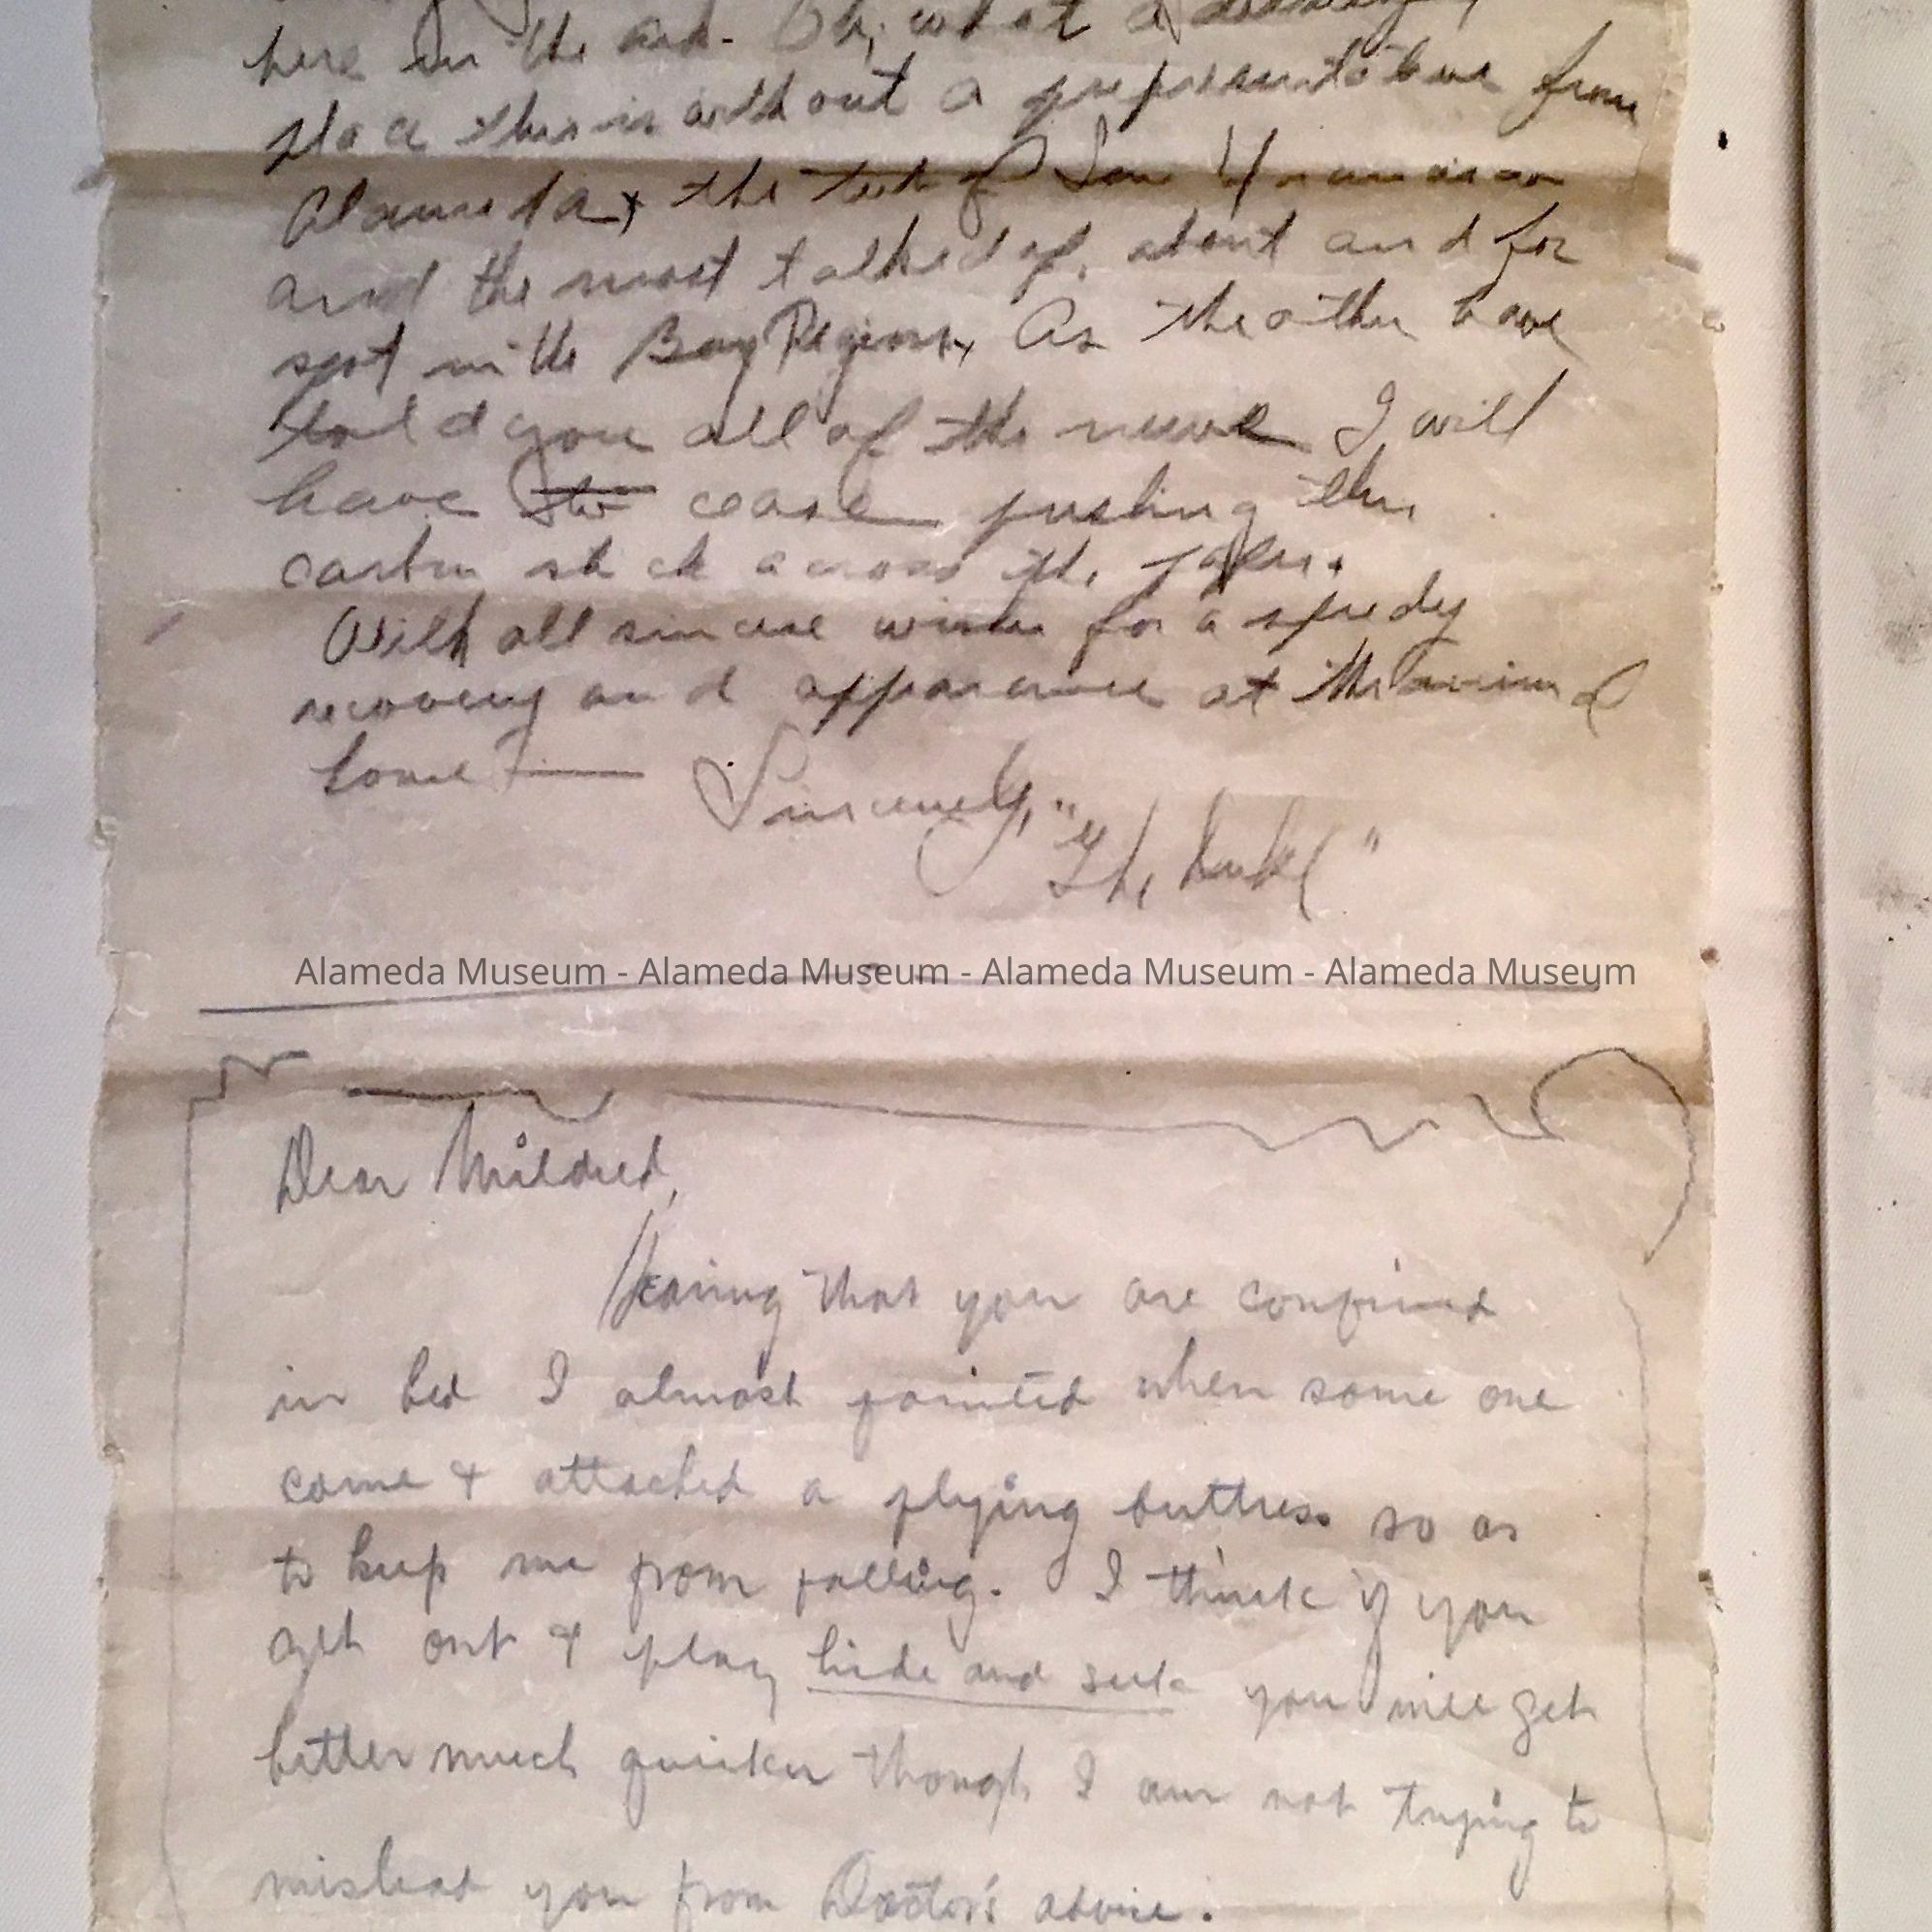 here in the ark. Oh, what a dreary
place this is without a representative from
Alameda, the rest of San Francisco
and the most talked of, about and for
spot in the Bay Region. As the other have
told you all of the news I will
have to cease pushing this
carbon stick across the paper.
With all sincere wishes for a speedy
recovery and appearance at the
home — Sincerely,
"The Duke"
Alameda Museum - Alameda Museum - Alameda Museum - Alameda Museum
Dear Mildred,
Hearing that you are confined
in bed I almost fainted when some one
came & attached a flying buttress so as
to keep me from falling. I think if you
get out & play hide and seek you will get
better much quicker though I am not trying to
mislead you from Doctor's advise.